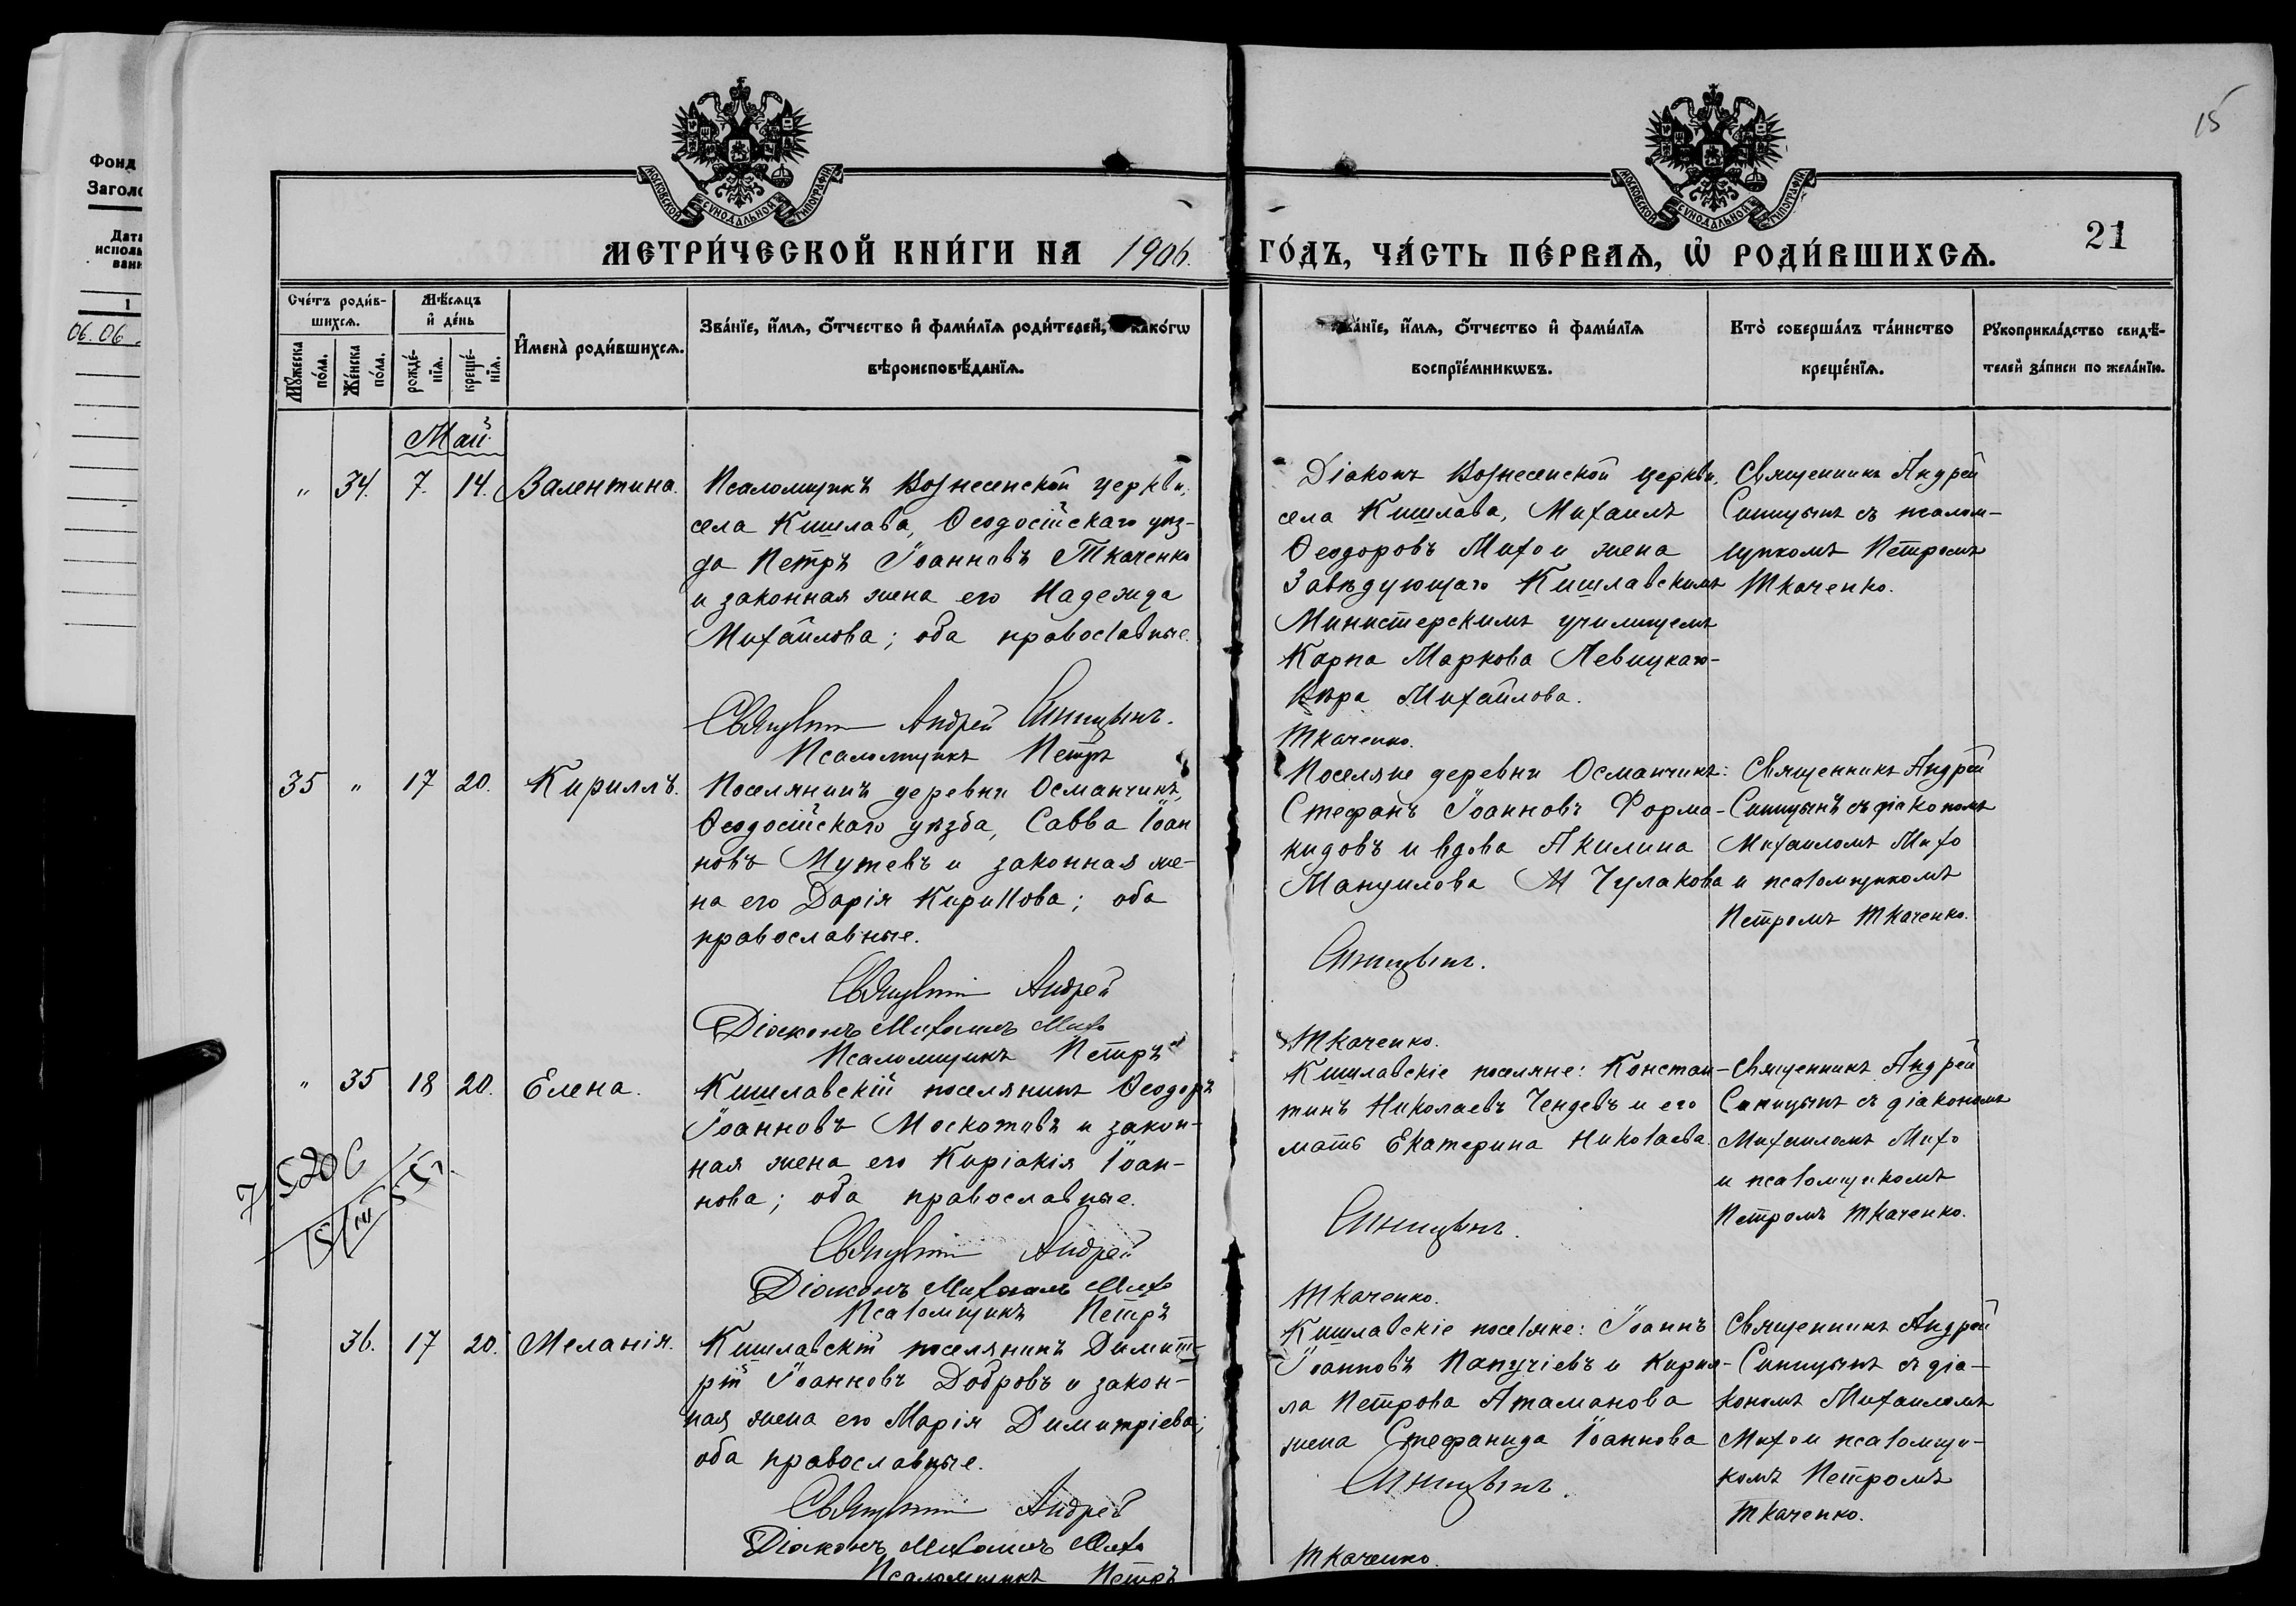 Фонд
Заголо
Дата
исполь
вани
1
06.06.
15
МОСКОВСКОЙ СѴНОДАЛЬНОЙ ТИПОГРАФІИ
МОСКОВСКОЙ СѴНОДАЛЬНОЙ ТИПОГРАФІИ
МЕТРИ́ЧЕСКОЙ КНИ́ГИ НА 1906. ГО́ДЪ, ЧА́СТЬ ПЕ́РВАѦ, Ѡ҆ РОДИ́ВШИХСѦ.
21
Сче́тъ роди́в-
шихсѧ.
Мꙋ́жеска
по́ла.
Же́нска
по́ла.
Мѣ́сѧцъ
и҆ де́нь
рожде́-
нїѧ.
креще́-
нїѧ.
И҆мена̀ роди́вшихсѧ.
Зва́нїе, и҆́мѧ, ѻ҆́тчество и҆ фами́лїѧ роди́телей, како́гѡ
вѣроисповѣ́данїѧ.
ва́нїе, и҆́мѧ, ѻ҆́тчество и҆ фами́лїѧ
воспрїе́мникѡвъ.
Кто̀ соверша́лъ та́инство
креще́нїѧ.
Рꙋкоприкла́дство свидѣ́-
телей за́писи по жела́нїю.
Май
" 34. 7. 14. Валентина.
Псаломщикъ Вознесенской церкви,
села Кишлава, Ѳеодосійскаго уѣз-
да Петръ Іоанновъ Ткаченко
и законная жена его Надежда
Михайлова; оба православные.
Священникъ Андрей Синицынъ.
Псаломщикъ Петръ Ткаченко.
Діаконъ Вознесенской церкви,
села Кишлава, Михаилъ
Ѳеодоровъ Михо и жена
Завѣдующаго Кишлавскимъ
Министерскимъ училищемъ
Карпа Маркова Левицкаго-
Вѣра Михайлова.
Священникъ Андрей
Синицынъ съ псалом-
щикомъ Петромъ
Ткаченко.
35 " 17 20. Кириллъ.
Поселянинъ деревни Османчикъ,
Ѳеодосійскаго уѣзда, Савва Іоан
новъ Мутевъ и законная же-
на его Дарія Кириллова; оба
православные.
Священникъ Андрей Синицынъ.
Діаконъ Михаилъ Михо
Псаломщикъ Петръ Ткаченко.
Поселяне деревни Османчикъ:
Стефанъ Іоанновъ Форма-
кидовъ и вдова Акилина
Мануилова Чулакова
Священникъ Андрей
Синицынъ съ діакономъ
Михаиломъ Михо
и псаломщикомъ
Петромъ Ткаченко.
" 35 18 20. Елена.
Кишлавскій поселянинъ Ѳеодоръ
Іоанновъ Москотовъ и закон-
ная жена его Киріакія Іоан-
нова; оба православные.
Священникъ Андрей Синицынъ.
Діаконъ Михаилъ Михо
Псаломщикъ Петръ Ткаченко.
Кишлавскіе поселяне: Констан-
тинъ Николаевъ Чендевъ и его
мать Екатерина Николаева.
Священникъ Андрей
Синицынъ съ діакономъ
Михаиломъ Михо
и псаломщикомъ
Петромъ Ткаченко.
36. 17 20. Меланія.
Кишлавскій поселянинъ Димит-
рій Іоанновъ Добровъ и закон-
ная жена его Марія Димитріева;
оба православные.
Священникъ Андрей Синицынъ.
Діаконъ Михаилъ Михо
Псаломщикъ Петръ Ткаченко.
Кишлавскіе поселяне: Іоаннъ
Іоанновъ Папучіевъ и Кирил-
ла Петрова Атаманова
жена Стефанида Іоаннова
Священникъ Андрей
Синицынъ съ діа-
кономъ Михаиломъ
Михо и псаломщи-
комъ Петромъ
Ткаченко.